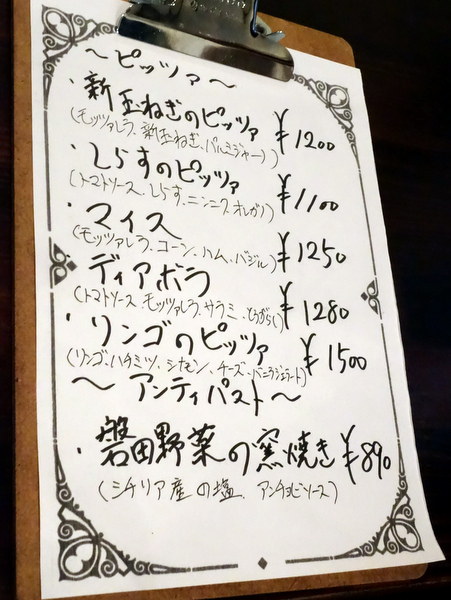 ～ピッツァ～
・新玉ねぎのピッツァ ¥1200
(モッツァレラ、新玉ねぎ、パルミジャーノ)
・しらすのピッツァ ¥1100
(トマトソース、しらす、ニンニク、オレガノ)
・マイス ¥1250
(モッツァレラ、コーン、ハム、バジル)
・ディアボラ ¥1280
(トマトソース、モッツァレラ、サラミ、とうがらし)
・リンゴのピッツァ ¥1500
(リンゴ、ハチミツ、シナモン、チーズ、バニラジェラート)
～アンティパスト～
・磐田野菜の窯焼き ¥890
(シチリア産の塩、アンチョビソース)